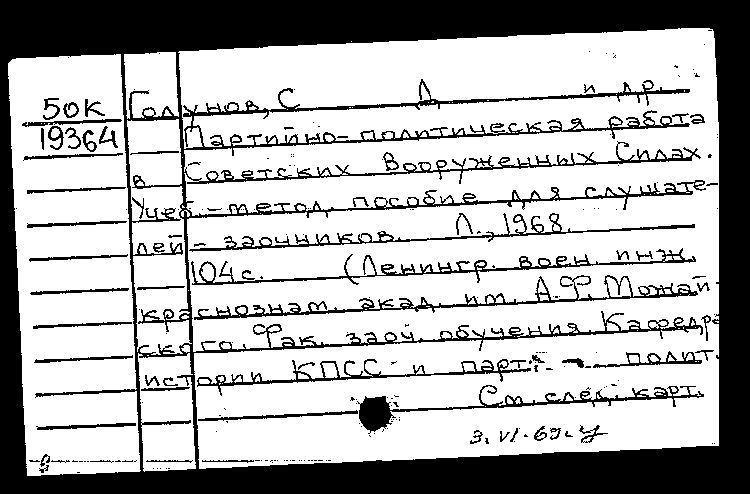 50К Голунов, С Д и др.
19364 Партийно-политическая работа
в Советских Вооруженных Силах.
Учеб.-метод. пособие для слушате-
лей-заочников. Л., 1968.
104с. (Ленингр. воен. инж.
краснознам. акад. им. А.Ф. Можай-
ского. Фак. заоч. обучения. Кафедра
истории КПСС и парт.- полит.
См. след. карт.
3.VI-69.